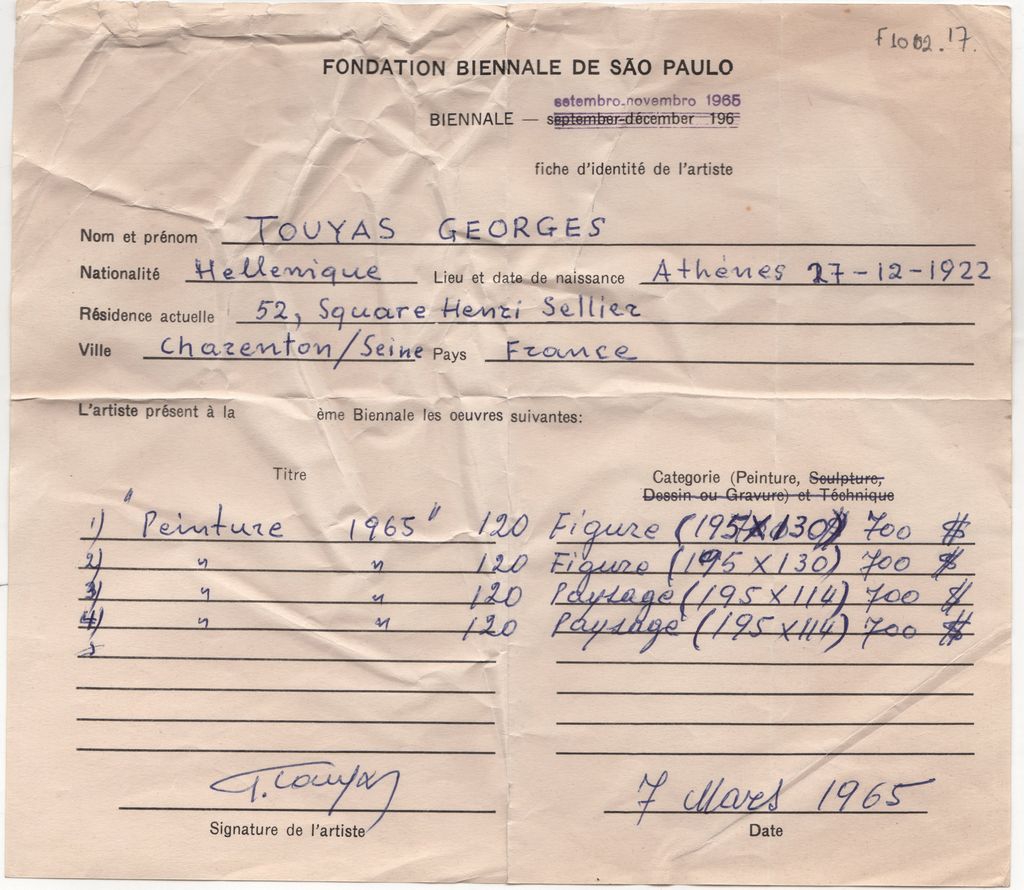 F 10 02.17.
FONDATION BIENNALE DE SÃO PAULO
setembro-novembro 1965
BIENNALE — september-décember 196
fiche d'identité de l'artiste
Nom et prénom TOUYAS GEORGES
Nationalité Hellenique Lieu et date de naissance Athénes 27-12-1922
Résidence actuelle 52, Square Henri Sellier
Ville Charenton/Seine Pays France
L'artiste présent à la ème Biennale les oeuvres suivantes:
Titre
Categorie (Peinture, Sculpture,
Dessin ou Gravure) et Téchnique
1) "Peinture 1965" 120 Figure (195X130) 700 $
2) " " 120 Figure (195 X 130) 700 $
3) " " 120 Paysage (195 X 114) 700 $
4) " " 120 Paysage (195 X 114) 700 $
G. Touyas
7 Mars 1965
Signature de l'artiste
Date